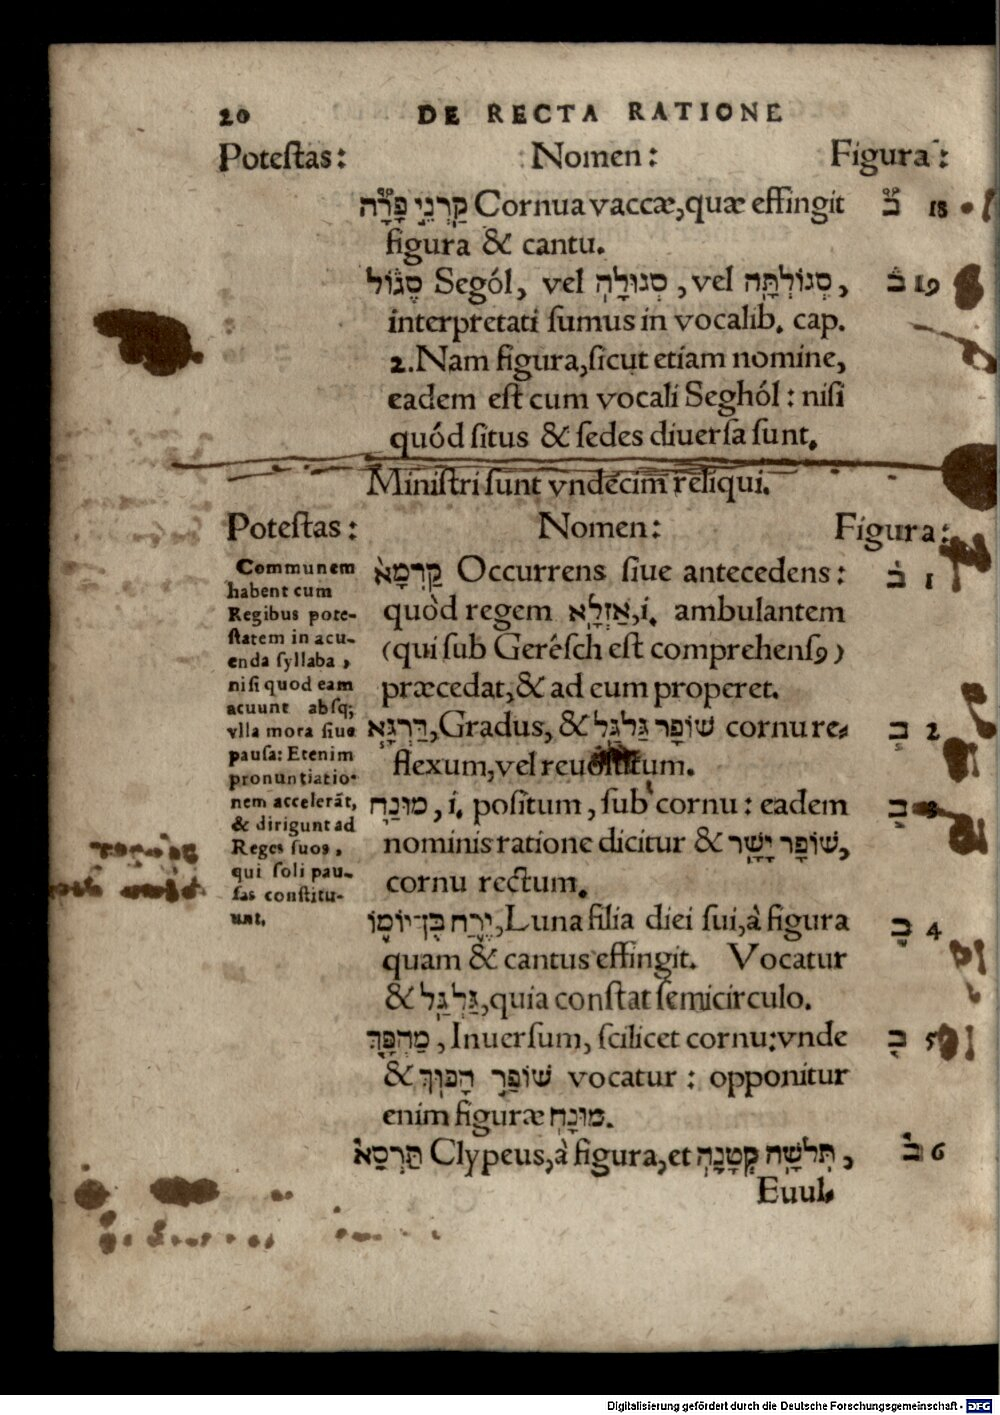 20 DE RECTA RATIONE
Poteſtas: Nomen: Figura:
קַרְנֵי פָרָה Cornua vaccæ, quæ effingit בֿ 18
figura & cantu.
סְגוֹל Segól, vel סְגוּלָה, vel סְגוֹלְתָּה, ב 19
interpretati ſumus in vocalib. cap.
2. Nam figura, ſicut etiam nomine,
eadem eſt cum vocali Seghól: niſi
quód ſitus & ſedes diuerſa ſunt.
Miniſtri ſunt vndecim reliqui.
Poteſtas: Nomen: Figura:
קַדְמָא Occurrens ſiue antecedens: ב֨ 1
quòd regem אַזְלָא, i. ambulantem
(qui ſub Geréſch eſt comprehenſꝯ)
præcedat, & ad eum properet.
דַּרְגָּא, Gradus, & שׁוֹפָר גַּלְגַּל cornu re⸗ ב֧ 2
flexum, vel reuolutum.
מוּנַח, i. poſitum, ſub cornu: eadem ב֣ 3
nominis ratione dicitur & שׁוֹפָר יָשָׁר,
cornu rectum.
יֶרַח בֶּן־יוֹמוֹ, Luna filia diei ſui, à figura ב֪ 4
quam & cantus effingit. Vocatur
& גַּלְגַּל, quia conſtat ſemicirculo.
מַהְפָּךְ, Inuerſum, ſcilicet cornu: vnde ב֤ 5
& שׁוֹפַר הָפוּךְ vocatur: opponitur
enim figuræ מוּנָח.
תַּרְסָא Clypeus, à figura, et תְּלִשָׁה קְטָנָה, ב֩ 6
Euul⸗
Communem
habent cum
Regibus pote-
ſtatem in acu-
enda ſyllaba,
niſi quod eam
acuunt abſq;
vlla mora ſiue
pauſa: Etenim
pronuntiatio-
nem accelerāt,
& dirigunt ad
Reges ſuos,
qui ſoli pau-
ſas conſtitu-
unt.
Digitalisierung gefördert durch die Deutsche Forschungsgemeinschaft - DFG